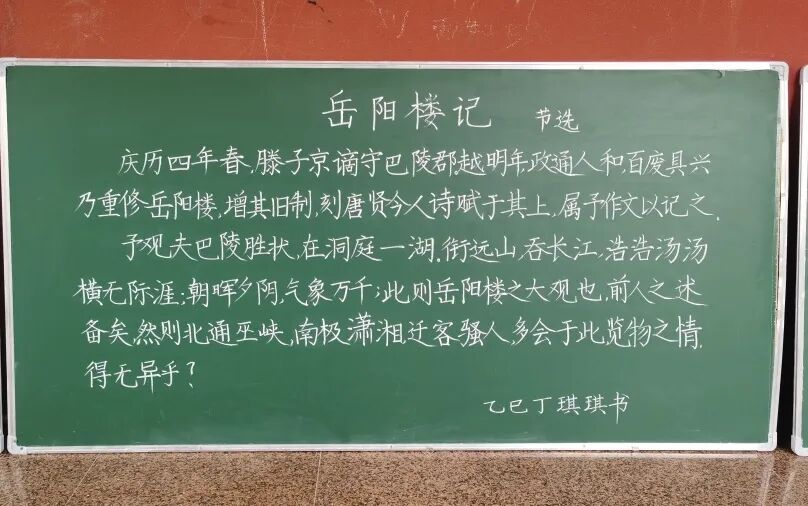 岳阳楼记 节选
庆历四年春,滕子京谪守巴陵郡,越明年,政通人和,百废具兴
乃重修岳阳楼,增其旧制,刻唐贤今人诗赋于其上,属予作文以记之.
予观夫巴陵胜状,在洞庭一湖.衔远山,吞长江,浩浩汤汤
横无际涯;朝晖夕阴,气象万千;此则岳阳楼之大观也,前人之述
备矣,然则北通巫峡,南极潇湘,迁客骚人,多会于此,览物之情.
得无异乎?
乙巳丁琪琪书